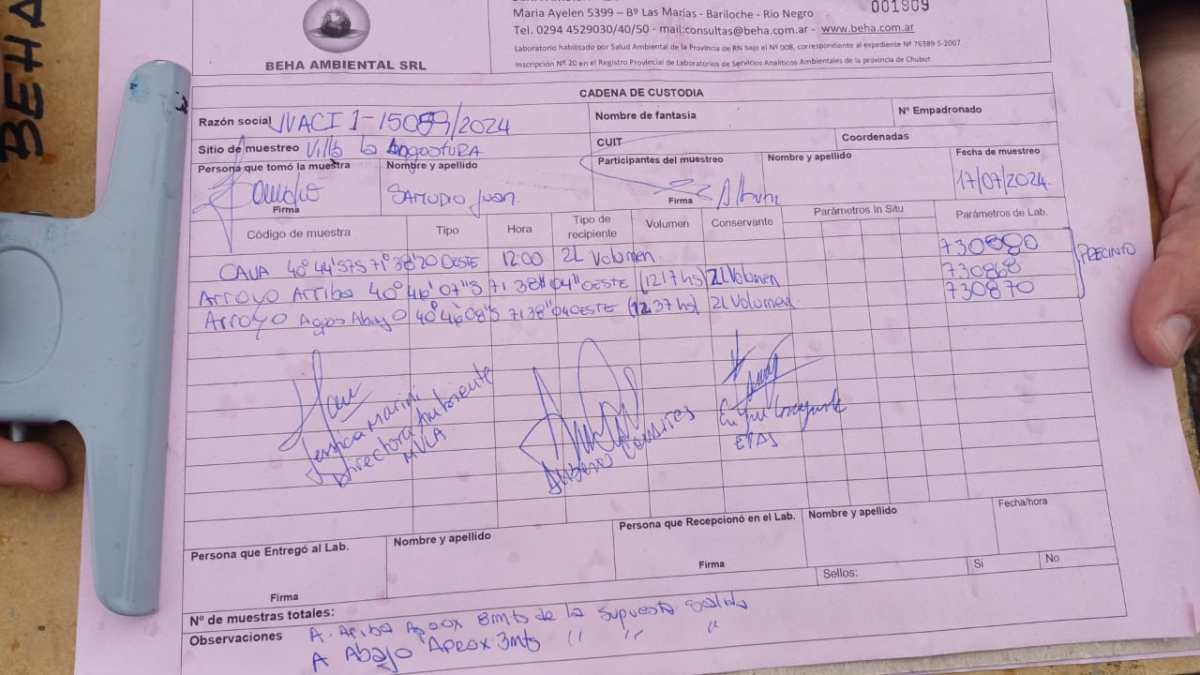 BEHA
BEHA AMBIENTAL SRL
001809
Maria Ayelen 5399 – Bº Las Marías - Bariloche - Rio Negro
Tel. 0294 4529030/40/50 - mail:consultas@beha.com.ar - www.beha.com.ar
Laboratorio habilitado por Salud Ambiental de la Provincia de RN bajo el Nº 008, correspondiente al expediente Nº 76389-S-2007
Inscripción Nº 20 en el Registro Provincial de Laboratorios de Servicios Analíticos Ambientales de la provincia de Chubut.
CADENA DE CUSTODIA
Razón social IVACI 1-15089/2024
Nombre de fantasia
Nº Empadronado
Sitio de muestreo Villa la Angostura
CUIT
Coordenadas
Persona que tomó la muestra
Firma
Nombre y apellido
SAMUDIO Juan
Participantes del muestreo
Firma
Nombre y apellido
Fecha de muestreo
17/07/2024
Código de muestra Tipo Hora Tipo de recipiente Volumen Conservante Parámetros In Situ Parámetros de Lab.
CAVA 40º44'57S 71º38'20 OESTE 12:00 2L Volumen 730880
ARROYO ARRIBA 40º46'07"S 71 38" 04" OESTE (1217 hs) 2L Volumen 730868
ARROYO Agos Abajo 40º46'08"S 7138" 04 OESTE (12.37 hs) 2L Volumen 730870
PRECINTO
Jessica Marini
Directora Ambiente
MVLA
Persona que Entregó al Lab.
Firma
Nombre y apellido
Persona que Recepcionó en el Lab.
Firma
Nombre y apellido
Fecha/hora
Sellos:
Si
No
Nº de muestras totales:
Observaciones A. Arriba Aprox 8mts de la supuesta salida
A Abajo Aprox 3mts " " "